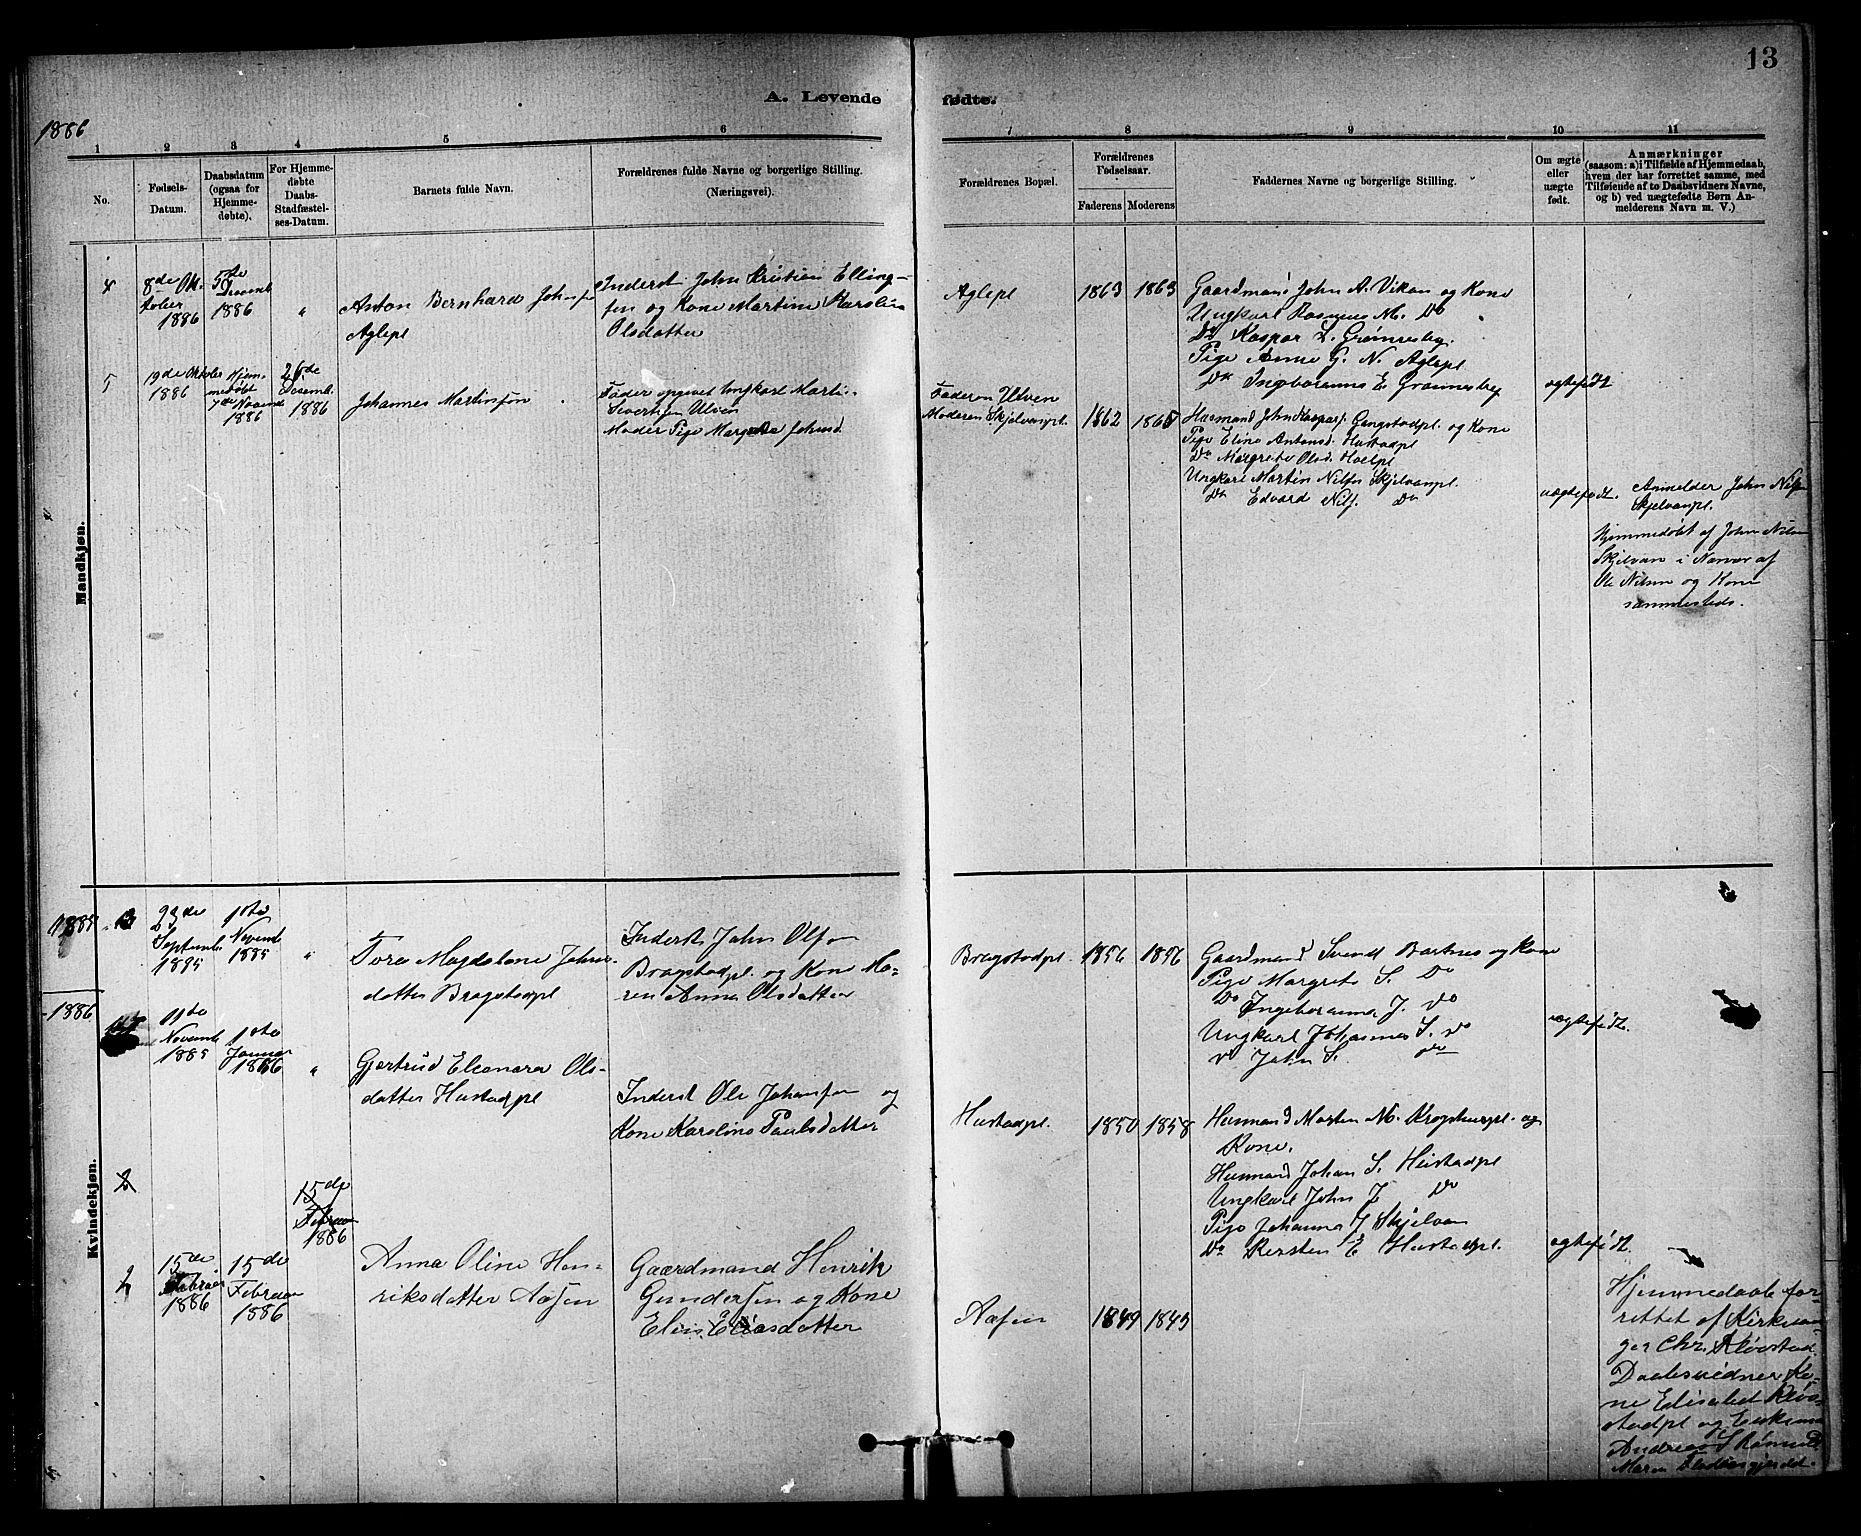 13
A. Levende fødte.
1886
1 2 3 4 5 6 7 8 9 10 11
No.
Fødsels-Datum.
Daabsdatum (ogsaa for Hjemmedøbte).
For Hjemmedøbte Daabs-Stadfæstelses-Datum.
Barnets fulde Navn.
Forældrenes fulde Navne og borgerlige Stilling.
(Næringsvei).
Forældrenes Bopæl.
Forældrenes Fødselsaar.
Faderens Moderens
Faddernes Navne og borgerlige Stilling.
Om ægte eller uægte født.
Anmærkninger
(saasom: a) i Tilfælde af Hjemmedaab, hvem der har forrettet samme, med Tilføiende af to Daabsvidners Navne, og b) ved uægtefødte Børn Anmelderens Navn m. V.)
Mandkjøn.
4
8de Ok-
tober
1886
5te
Decemb
1886
"
Anton Bernhard Johnsen
Aglepl
Inderst John Kristian Elling-
sen og Kone Martine Karolin
Olsdatter
Aglepl
1863 1863
Gaardmand John A. Vikan og Kone
Ungkarl Rasmus M. Do
Do Kaspar L. Grønnesby
Pige Anne G. N. Aglepl
Do Ingeboranna E Grønnesby
ægtefødt
5
19de Oktober
1886
Hjem-
medøbt
7de Novemb
1886
26de
Decemb.
1886
Johannes Martinsøn
Fader opgivet Ungkarl Martin
Sivertsen Ulven
Moder Pige Margrete Johnsd.
Faderen Ulven
Moderen Skjelvanpl.
1862 1865
Husmand John Kasparsen Gangstadpl. og Kone
Pige Eline Antonsd. Hustadpl
Do Margrete Olsd. Hoelpl
Ungkarl Martin Nilsen Skjelvanpl.
Do Edvard Nils. Do
uægtefødt.
Anmelder John Nilsen
Skjelvanpl.
Hjemmedøbt af John Nilsen
Skjelvan i Nærvær af
Ole Nilsen og Kone
sammesteds.
Kvindekjøn.
1885
23de
Septemb
1895
1ste
Novemb
1885
"
Tora Magdalena Johns-
datter Bragstadpl
Inderst John Olsen
Bragstadpl. og Kone Ma-
ren Anna Olsdatter
Bragstadpl.
1856 1856
Gaardmand Svend Bartnes og Kone
Pige Margrete S. Do
Do Ingeboranna J. Do
Ungkarl Johannes S. Do
Do John S. Do
ægtefødt.
1886
11te
Novemb
1885
1ste
Januar
1886
"
Gjertrud Eleonora Ols-
datter Hustadpl
Inderst Ole Johansen og
Kone Karoline Paulsdatter
Hustadpl.
1850 1858
Husmand Morten M. Krogshuspl. og
Kone.
Husmand Johan S. Hustadpl
Ungkarl John J. Do
Pige Johanna J Skjelvan
Do Kersten E Hustadpl.
ægtefødt.
2
15de
Februar
1886
2
15de
Februar
1886
15de
Februar
1886
Anna Oline Hen-
riksdatter Aasen
Gaardmand Henrik
Gundersen og Kone
Elen Eliasdatter
Aasen
1849 1843
Hjemmedaab for-
rettet af Kirkesan-
ger Chr. Kløvstad.
Daabsvidner Ko-
ne Elisabet Kløv-
stadpl og Enkema
Andreas S
Maren